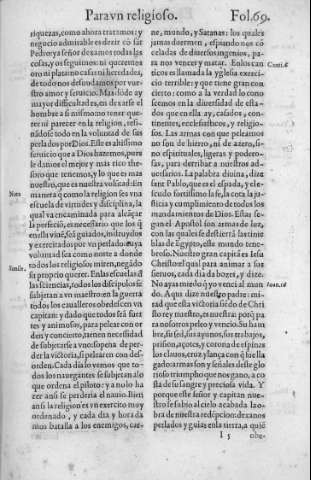 Para vn religioso.
Fol.69.
riquezas, como ahora tratamos: y
negocio admirable es dezir cō sant
Pedro: ya señor dexamos todas las
cosas, y os seguimos: ni queremos
oro ni plata ni casas ni heredades,
de todo nos desnudamos por vue-
stro amor y seruicio. Mas dōde ay
mayor difficultad es, en dexarse el
hombre a si mismo no tener que-
rer ni parecer en la religion, resi-
nādose todo en la voluntad de sus
perlados por Dios. Este es altissimo
seruicio que a Dios hazemos, porq̄
le damos el mejor y mas rico the-
soro que tenemos, y lo que es mas
nuestro, que es nuestra volūtad: En
Nota
manera q̄ como la religion sea vna
escuela de virtudes y disciplina, la
qual va encaminada para alcāçar
la perfectiō, es necesario que los q̄
en ella viuē, seā guiados, instruydos
y exercitados por vn perlado cuya
voluntad sea como norte a donde
todos los religiosos miren, negādo
Simile.
su proprio querer. En las escuelas d̄
las sciencias, todos los discipulos se
subjetan a vn maestro: en la guerra
todos los caualleros obedecen vn
capitan: y dado que todos seā fuer-
tes y animosos, para pelear con or
den y concierto, tienen necesidad
de subjetarse a vno: so pena de per-
der la victoria, si pelearen con des-
orden. Cada dia lo vemos que to-
dos los nauegantes se subjetan a lo
que ordena el piloto: y a no lo ha
zer ansi se perderia el nauio. Bien
ansi la religion es vn exercito muy
ordenado, y cada dia y hora da
mos batalla a los enemigos, car-
ne, mundo, y Satanas: los quales
jamas duermen, espiando nos cō
celadas de diuersos ingenios, pa-
ra nos vencer y matar. En los can
Canti.6
ticos es llamada la yglesia exerci-
cio terrible: y que tiene gran con
cierto: como a la verdad lo cono
scemos en la diuersidad de esta-
dos que en ella ay, casados, con-
tinentes, ecclesiasticos, y religio-
sos. Las armas con que peleamos
no son de hierro, ni de azero, si-
no espirituales, ligeras y podero-
sas, para derribar a nuestros ad-
uersarios. La palabra diuina, dize
sant Pablo, que es el espada, y el e-
scudo fortissimo la fe, la cota la ju-
sticia y cumplimiento de todos los
mandamientos de Dios. Estas se-
gun el Apostol son armas de luz,
con las quales se destierrā las tinie
blas de Egypto, este mundo tene-
broso. Nuestro gran capitā es Iesu
Christo: el qual para animar a sus
sieruos, cada dia da bozes, y dize.
No ayas miedo q̄ yo venci al mun
Ioan.16
do. Aqui dize nuestro padre: mi-
rad que esta victoria siēdo de Chri
sto rey nuestro, es nuestra: porq̄ pa
ra nosotros peleo y vencio. Su ham
bre, su sed, sus ayunos, sus trabajos,
prision, açotes, y corona de espinas
los clauos, cruz y lança con q̄ fue lla
gado: armas son y señales deste glo
rioso triumpho que nos gano, a co
sta de su sangre y preciosa vida. Y
porque este señor y capitan nue-
stro se subio al cielo acabada la o-
bra de nuestra redempcion: dexanos
perlados y guias en la tierra, a quiē
I 5
obe-